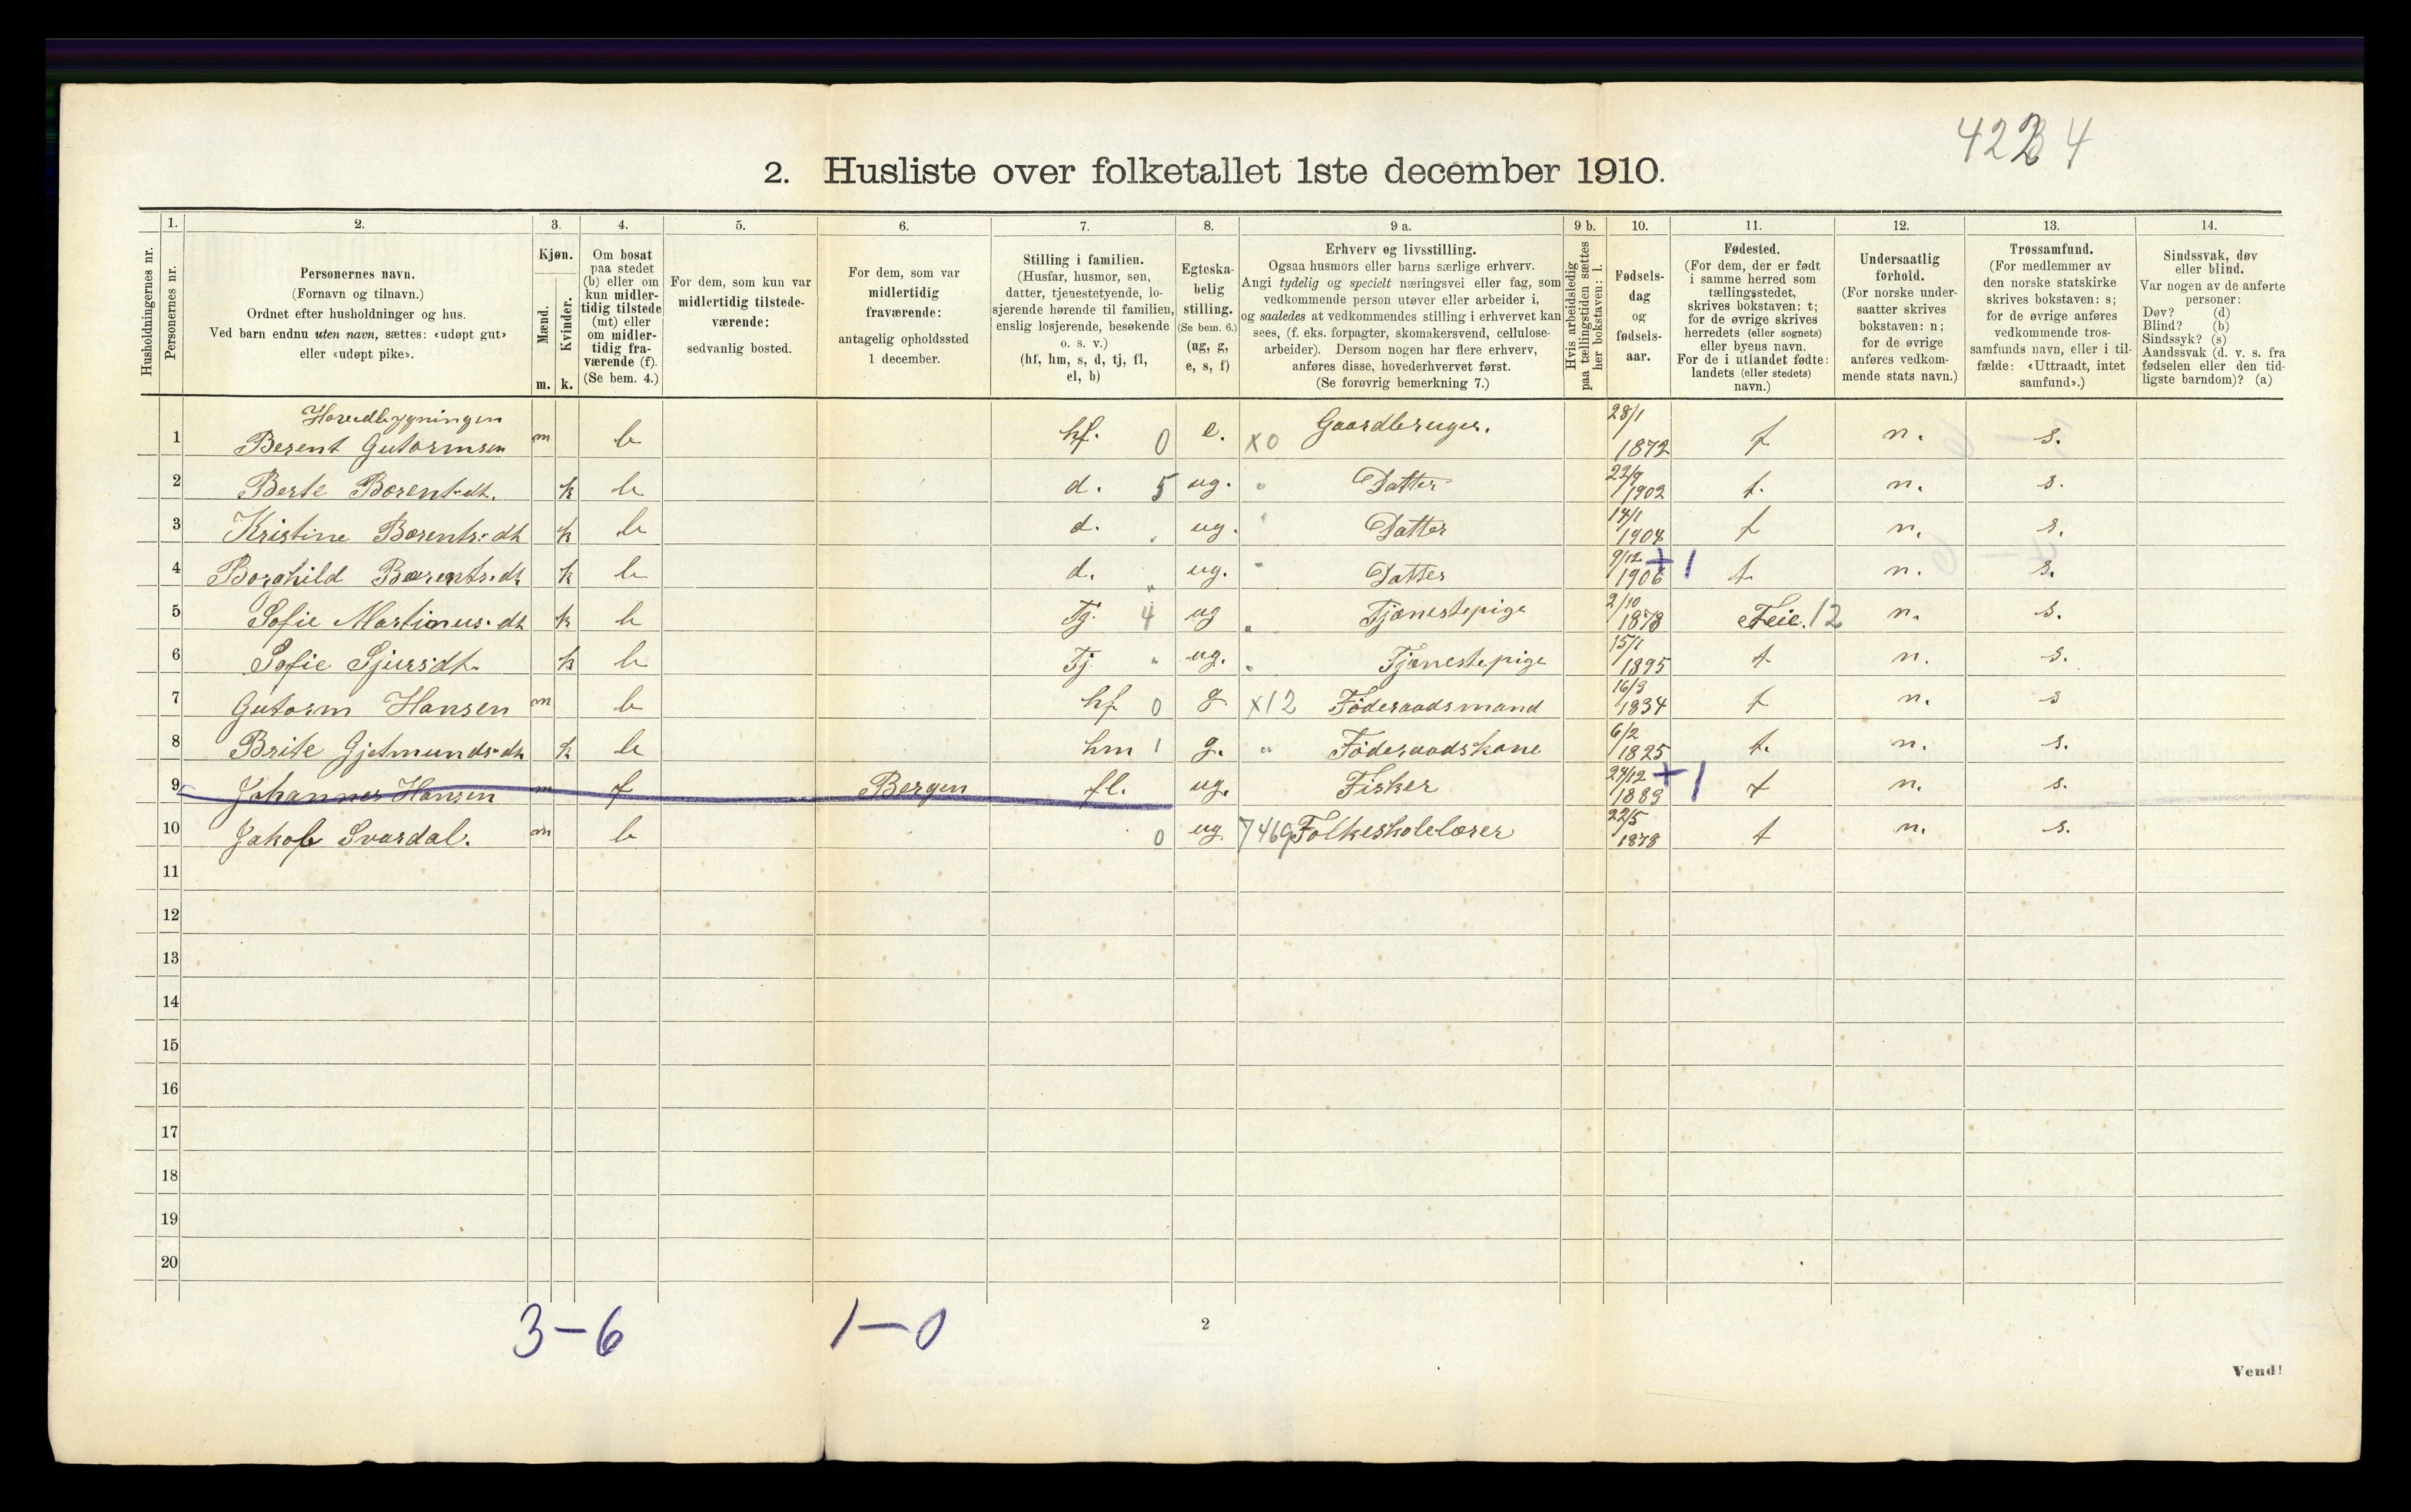 4224
2. Husliste over folketallet 1ste december 1910.
1. 2. 3. 4. 5. 6. 7. 8. 9 a. 9 b. 10. 11. 12. 13. 14.
Husholdningernes nr.
Personernes nr.
Personernes navn.
(Fornavn og tilnavn.)
Ordnet efter husholdninger og hus.
Ved barn endnu uten navn, sættes: «udøpt gut»
eller «udøpt pike».
Kjøn.
Mænd.
Kvinder.
m. k.
Om bosat
paa stedet
(b) eller om
kun midler-
tidig tilstede
(mt) eller
om midler-
tidig fra-
værende (f).
(Se bem. 4.)
For dem, som kun var
midlertidig tilstede-
værende:
sedvanlig bosted.
For dem, som var
midlertidig
fraværende:
antagelig opholdssted
1 december.
Stilling i familien.
(Husfar, husmor, søn,
datter, tjenestetyende, lo-
sjerende hørende til familien,
enslig losjerende, besøkende
o. s. v.)
(hf, hm, s, d, tj, fl,
el, b)
Egteska-
belig
stilling.
(Se bem. 6.)
(ug, g,
e, s, f)
Erhverv og livsstilling.
Ogsaa husmors eller barns særlige erhverv.
Angi tydelig og specielt næringsvei eller fag, som
vedkommende person utøver eller arbeider i,
og saaledes at vedkommendes stilling i erhvervet kan
sees, (f. eks. forpagter, skomakersvend, cellulose-
arbeider). Dersom nogen har flere erhverv,
anføres disse, hovederhvervet først.
(Se forøvrig bemerkning 7.)
Hvis arbeidsledig
paa tællingstiden sættes
her bokstaven: l.
Fødsels-
dag
og
fødsels-
aar.
Fødested.
(For dem, der er født
i samme herred som
tællingsstedet,
skrives bokstaven: t;
for de øvrige skrives
herredets (eller sognets)
eller byens navn.
For de i utlandet fødte:
landets (eller stedets)
navn.)
Undersaatlig
forhold.
(For norske under-
saatter skrives
bokstaven: n;
for de øvrige
anføres vedkom-
mende stats navn.)
Trossamfund.
(For medlemmer av
den norske statskirke
skrives bokstaven: s;
for de øvrige anføres
vedkommende tros-
samfunds navn, eller i til-
fælde: «Uttraadt, intet
samfund».)
Sindssvak, døv
eller blind.
Var nogen av de anførte
personer:
Døv? (d)
Blind? (b)
Sindssyk? (s)
Aandssvak (d. v. s. fra
fødselen eller den tid-
ligste barndom)? (a)
Hovedbygningen
1 Berent Gutormsen m b hf. 0 e. x0 Gaardbruger. 28/1 1872 t n. s.
2 Berte Berentsdt. k b d. 5 ug. " Datter 22/9 1902 t. n. s.
3 Kristine Berentsdt k b d. " ug. " Datter 14/1 1904 t n. s.
4 Borghild Berentsdt k b d. " ug. " Datter 9/12 1906 +1 t. n. s.
5 Sofie Martinusdt k b Tj. 4 ug " Tjenestepige 2/10 1878 Feie. 12 n. s.
6 Sofie Sjursdt. k b Tj " ug. " Tjenestepige 15/1 1895 t n. s.
7 Gutorm Hansen m b hf 0 g x12 Føderaadsmand 16/3 1834 t n. s
8 Brite Gjetmundsdt k b hm 1 g. " Føderaadskone 6/2 1825 t. n. s.
9 Johannes Hansen m f Bergen fl. ug. Fisker 24/12 1883 +1 t n. s.
10 Jakob Svardal. m b 0 ug 7469 Folkeskolelærer 22/5 1878 t n. s.
11
12
13
14
15
16
17
18
19
20
3-6 1-0
2
Vend!